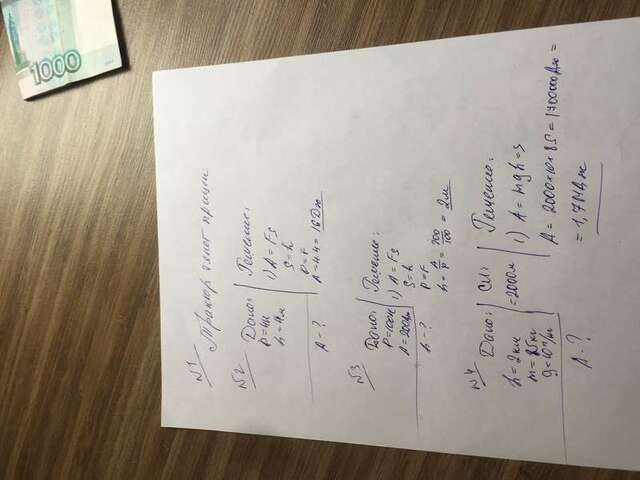 1000
№1 Трактор тянет прицеп
№2 Дано: Решение:
P=4Н 1) A=Fs
h=4м S=h
P=F
A-? A=4·4=16Дж
№3 Дано: Решение:
P=100Н 1) A=Fs
A=200Дж S=h
P=F
h-? h=A/P=200/100=2м
№4 Дано: СИ: Решение:
h=2км =2000м 1) A=mgh=
g=10Н/кг A=2000×10×85=1700000Дж=
A-? =1,7МДж